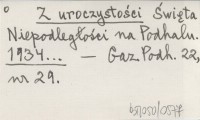 Z uroczystości Święta
Niepodległości na Podhalu.
1934... — Gaz. Podh. 22,
nr 29.